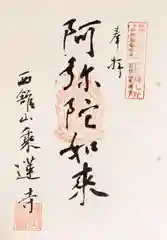 奉拝
阿弥陀如来
西館山乗蓮寺